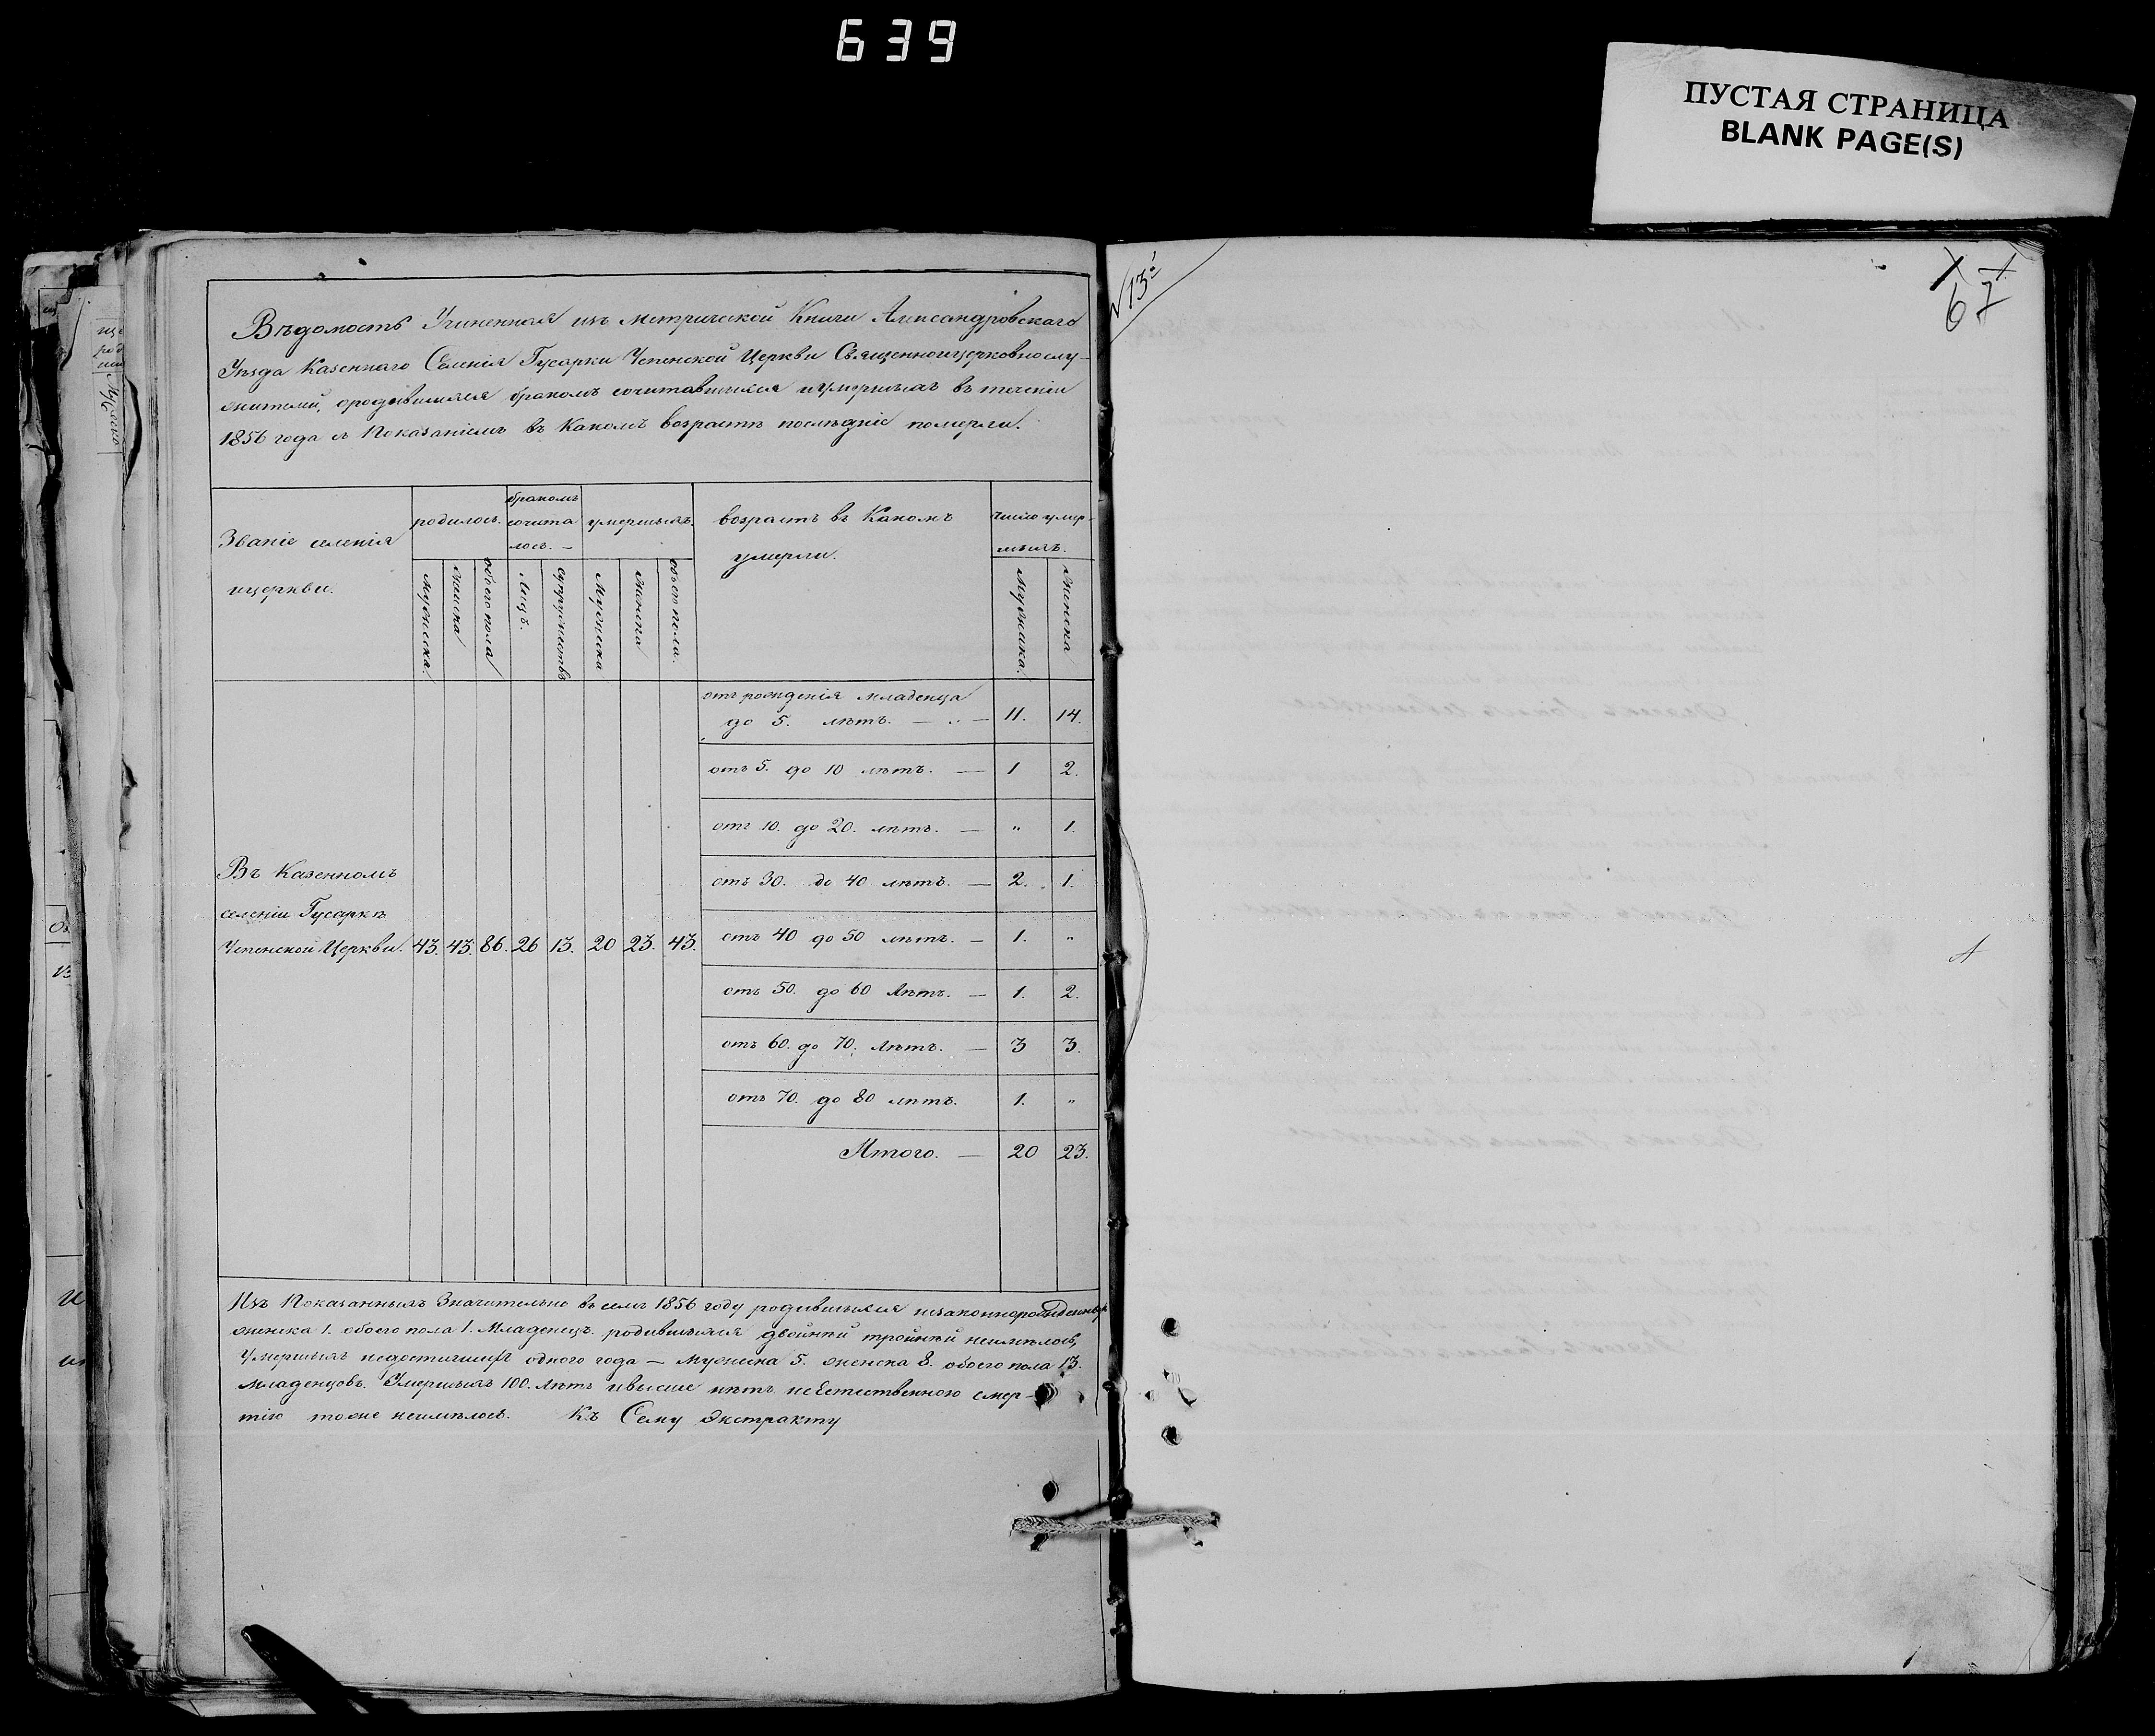 639
ПУСТАЯ СТРАНИЦА
BLANK PAGE(S)
Вѣдомость Учиненная изъ Метрической Книги Александровскаго
Уѣзда Казеннаго Селенія Гусарки Успенской Церкви Священноицерковнослу-
жителми, ородившихся бракомъ сочитавшихся иумершыхъ въ теченіи
1856 года съ Показаніемъ въ Какомъ возрастѣ послѣдніе померли.
Званіе селенія
ицеркви.
родилось.
бракомъ
сочита
лось. —
умершыхъ.
возрастъ въ Какомъ
умерли.
число умер-
шыхъ.
Мужеска.
Женска
обоего пола
Лицъ.
Супружествъ
Мужеска
Женска
обоего пола.
Мужеска.
Женска
отъ рожденія младенца
до 5. лѣтъ. — 11. 14.
отъ 5. до 10 лѣтъ. — 1 2.
отъ 10. до 20. лѣтъ. — „ 1.
отъ 30. до 40 лѣтъ. — 2. 1.
отъ 40 до 50 лѣтъ. — 1. „
отъ 50. до 60 Лѣтъ. — 1. 2.
отъ 60. до 70. Лѣтъ. — 3 3.
отъ 70. до 80 лѣтъ. 1. „
Итого. — 20 23.
Въ Казенномъ
селеніи Гусаркѣ
Успенской Церкви. 43. 43. 86. 26 13. 20 23. 43.
Изъ Показанныхъ Значительно въ семъ 1856 году родившыхся незаконнорожденныхъ
женска 1. обоего пола 1. Младенецъ. родившыхся двойнѣй тройнѣй неимѣлось,
Умершыхъ недостигшихъ одного года — Мужеска 5. женска 8. обоего пола 13.
младенцовъ. Умершыхъ 100. Лѣтъ ивысше нѣтъ, неЕстественного смер-
тію тоже неимѣлось. Къ Сему Экстракту
№13й
67